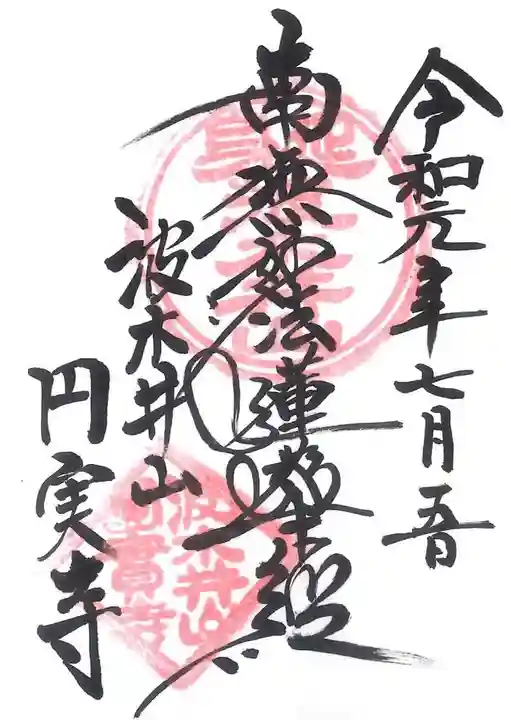 令和元年七月五日
南無妙法蓮華経
波木井山
円実寺
波木井山
円實寺